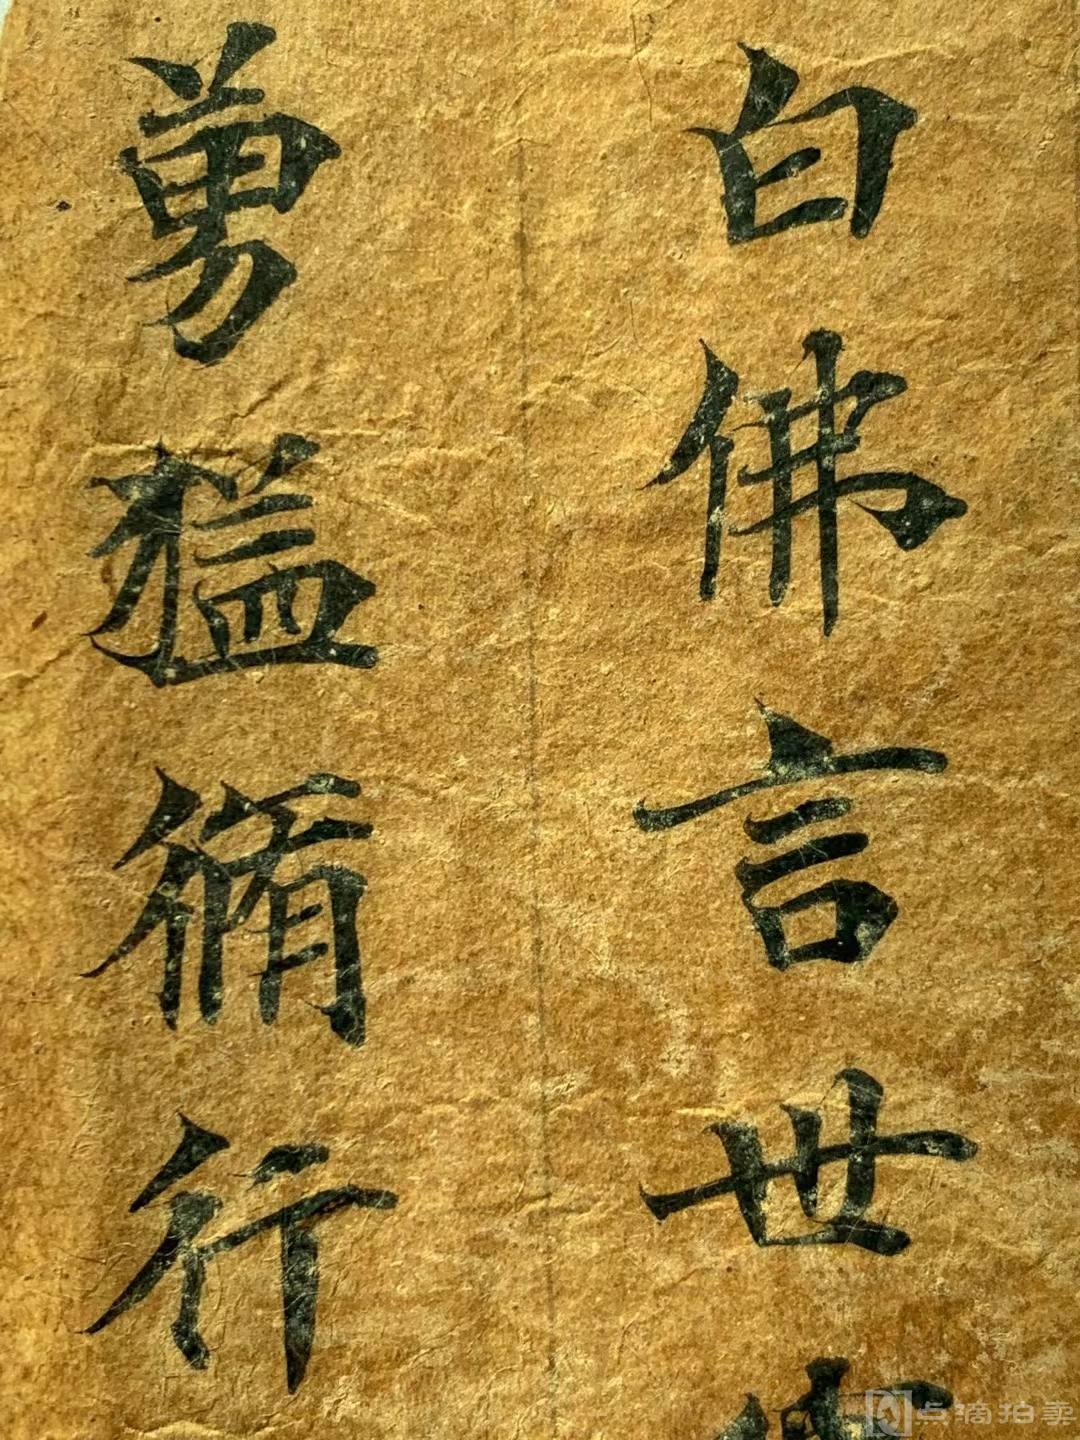 白佛言世
勇猛脩行
点滴拍卖